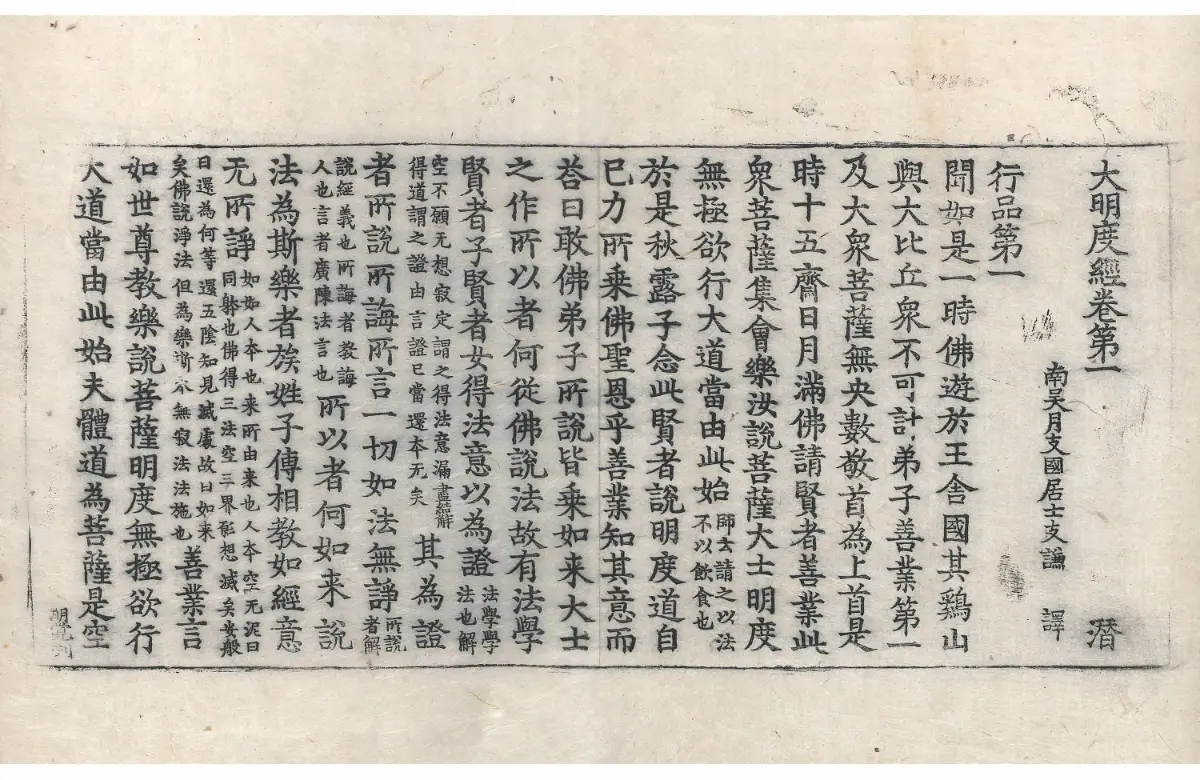 大明度經卷第一　潛
南吴月支國居士支謙　譯
行品第一
聞如是一時佛遊於王舍國其鷄山
與大比丘衆不可計弟子善業第一
及大衆菩薩無央數敬首為上首是
時十五齋日月滿佛請賢者善業此
衆菩薩集會樂汝說菩薩大士明度
無極欲行大道當由此始師云請之以法不以飲食也
於是秋露子念此賢者說明度道自
已力所乘佛聖恩乎善業知其意而
荅曰敢佛弟子所說皆乘如来大士
之作所以者何從佛說法故有法學
賢者子賢者女得法意以為證法學學法也解
空不願无想寂定謂之得法意漏盡結解得道謂之證由言證已當還本无矣其為證
者所說所誨所言一切如法無諍所說者解
說經義也所誨者教誨人也言者廣陳法言也所以者何如来說
法為斯樂者族姓子傳相教如經意
无所諍如如人本也来所由来也人本空无泥曰同歸也佛得三法空三界想滅矣安般
曰還為何等還五陰知見滅處故曰如来矣佛說淨法但為樂無寂法法施也善業言
如世尊教樂說菩薩明度無極欲行
大道當由此始夫體道為菩薩是空